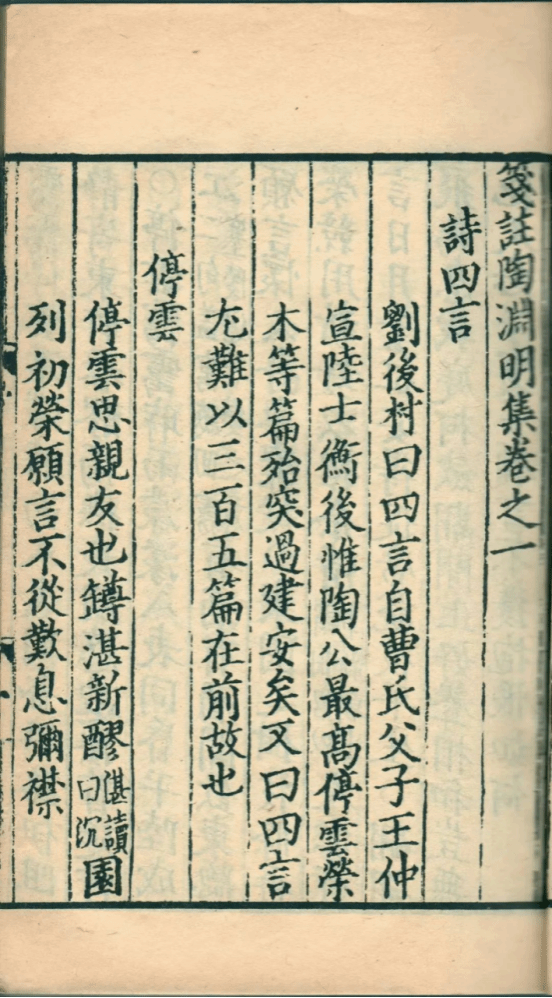 箋註陶淵明集卷之一
詩四言
劉後村曰四言自曹氏父子王仲
宣陸士衡後惟陶公最高停雲榮
木等篇殆突過建安矣又曰四言
尤難以三百五篇在前故也
停雲
停雲思親友也罇湛新醪湛讀曰沉園
列初榮願言不從歎息彌襟